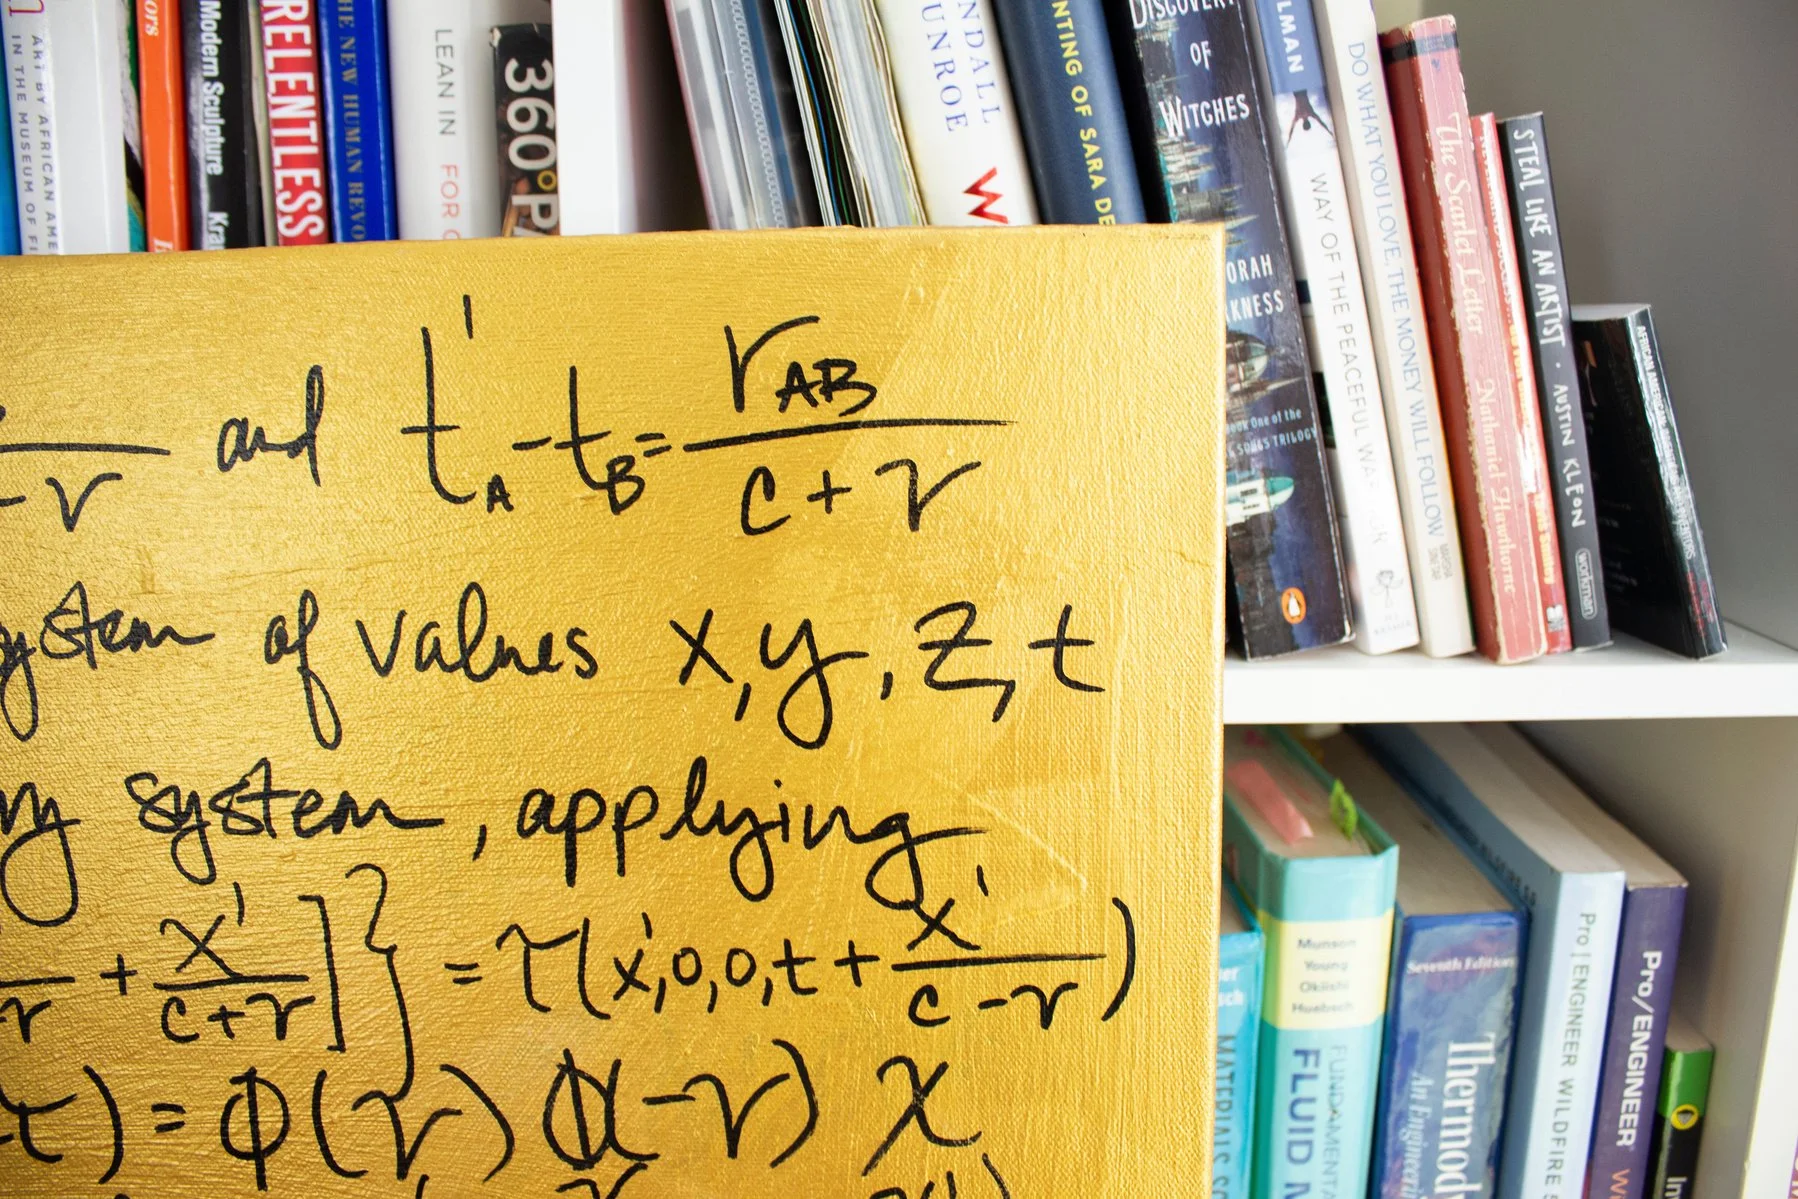 ART BY AFRICAN AME
IN THE MUSEUM OF FI
ors
Modern Sculpture Kra
RELENTLESS
HE NEW HUMAN REVO
LEAN IN FOR G
360°P
NDALL
UNROE
W
NTING OF SARA DE
DISCOVERY
OF
WITCHES
ORAH
RKNESS
Book One of the
SOULS TRILOGY
LMAN
WAY OF THE PEACEFUL WA
DO WHAT YOU LOVE, THE MONEY WILL FOLLOW
The Scarlet Letter Nathaniel Hawthorne
STEAL LIKE AN ARTIST · AUSTIN KLEON
workman
-v and t'A - tB = rAB / c + v
ystem of values x, y, z, t
ny system, applying
v + x' / c+v ]} = τ(x',0,0,t + x' / c - v)
t) = ϕ(v) ϕ(-v) x
Munson
Young
Okiishi
Huebsch
FUNDAMENTA
FLUID M
MATERIALS SC
Seventh Edition
Thermody
An Engineeri
Pro | ENGINEER WILDFIRE
Pro/ENGINEER W
In